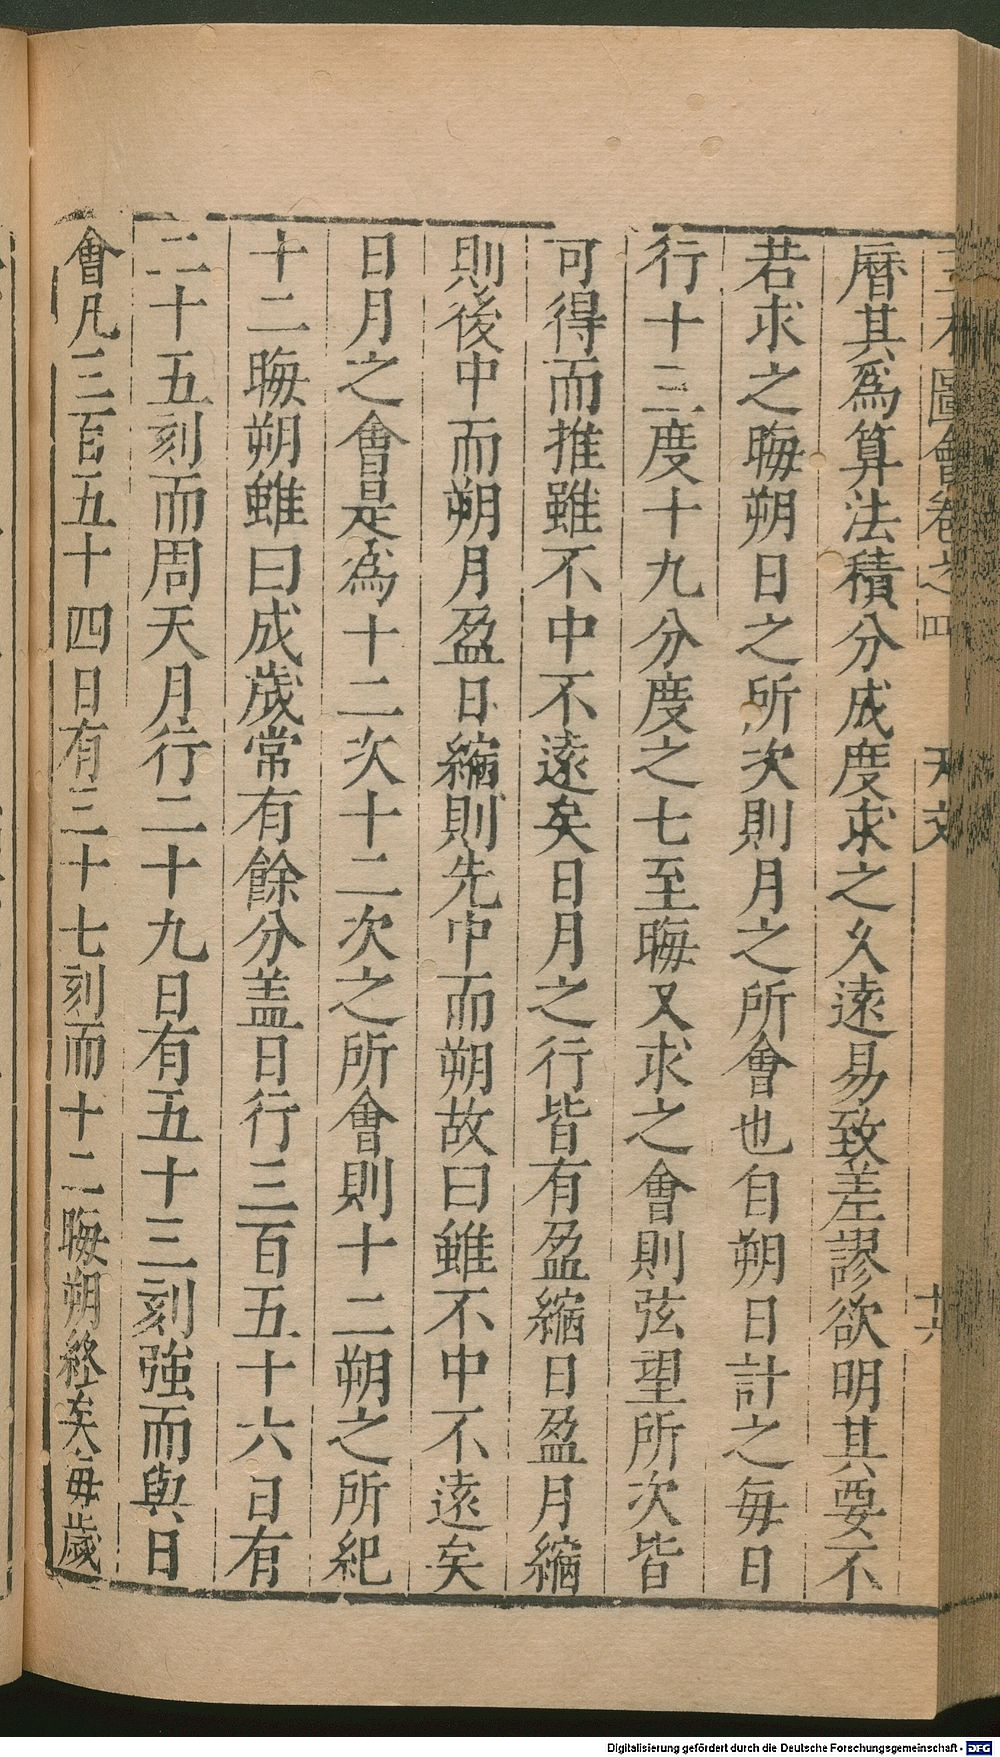 三才圖會卷之四 天文 十六
曆其爲算法積分成度求之久遠易致差謬欲明其要不
若求之晦朔日之所次則月之所會也自朔日計之每日
行十三度十九分度之七至晦又求之會則弦望所次皆
可得而推雖不中不遠矣日月之行皆有盈縮日盈月縮
則後中而朔月盈日縮則先中而朔故曰雖不中不遠矣
日月之會是爲十二次十二次之所會則十二朔之所紀
十二晦朔雖曰成歲常有餘分盖日行三百五十六日有
二十五刻而周天月行二十九日有五十三刻強而與日
會凡三百五十四日有三十七刻而十二晦朔終矣每歲
Digitalisierung gefördert durch die Deutsche Forschungsgemeinschaft - DFG